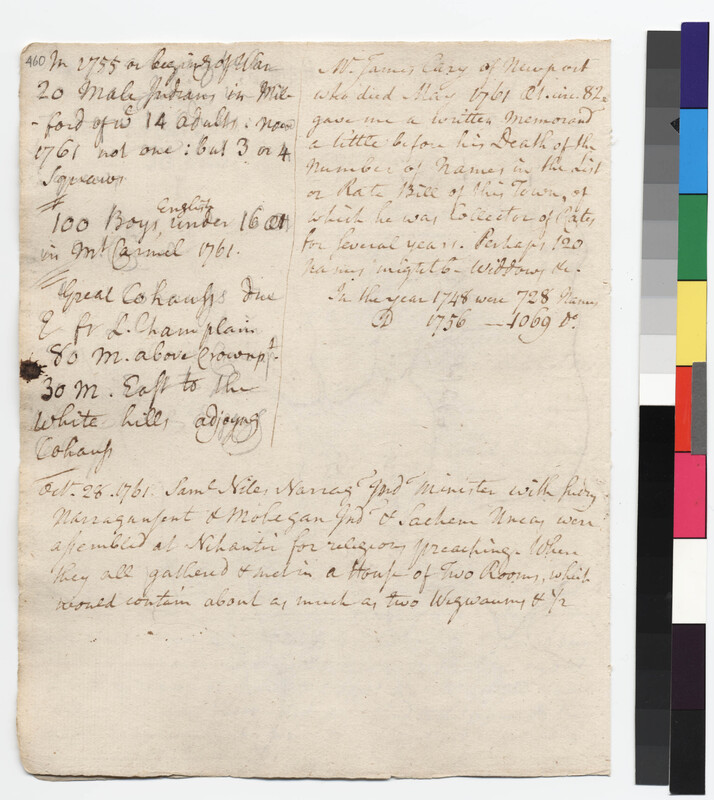 460
In 1755 or begin[n]g of War
20 Male Indians in Mil
-ford of wc 14 adults: now
1761 not one: but 3 or 4
Squaws
100 Boys English under 16 Æt
in Mt Carmel 1761.
Great Cohauss due
E fr L. Champlain
80 m. above Crownpt.
30 m. East to the
White hills adjoyng
Cohauss
Mr. James Cary of Newport
who died May 1761 Æt. circ. 82,
gave me a written Memorand
a little before his Death of the
Number of Names in the List
or Rate Bill of this Town, of
which he was Collector of Rates
for several years. Perhaps 120
Names might b- Widdows &c.
In the year 1748 were 728 Names
D 1756 — 1069 Do.
Oct. 28. 1761. Saml. Niles Narragt Indn Minister with sundry
Narraganset & Mohegan Indns & Sachem Uncas were
assembled at Nihantic for religious preaching. When
they all gathered & met in a House of Two Rooms, which
would contain about as much as two Wigwaums & 1/2